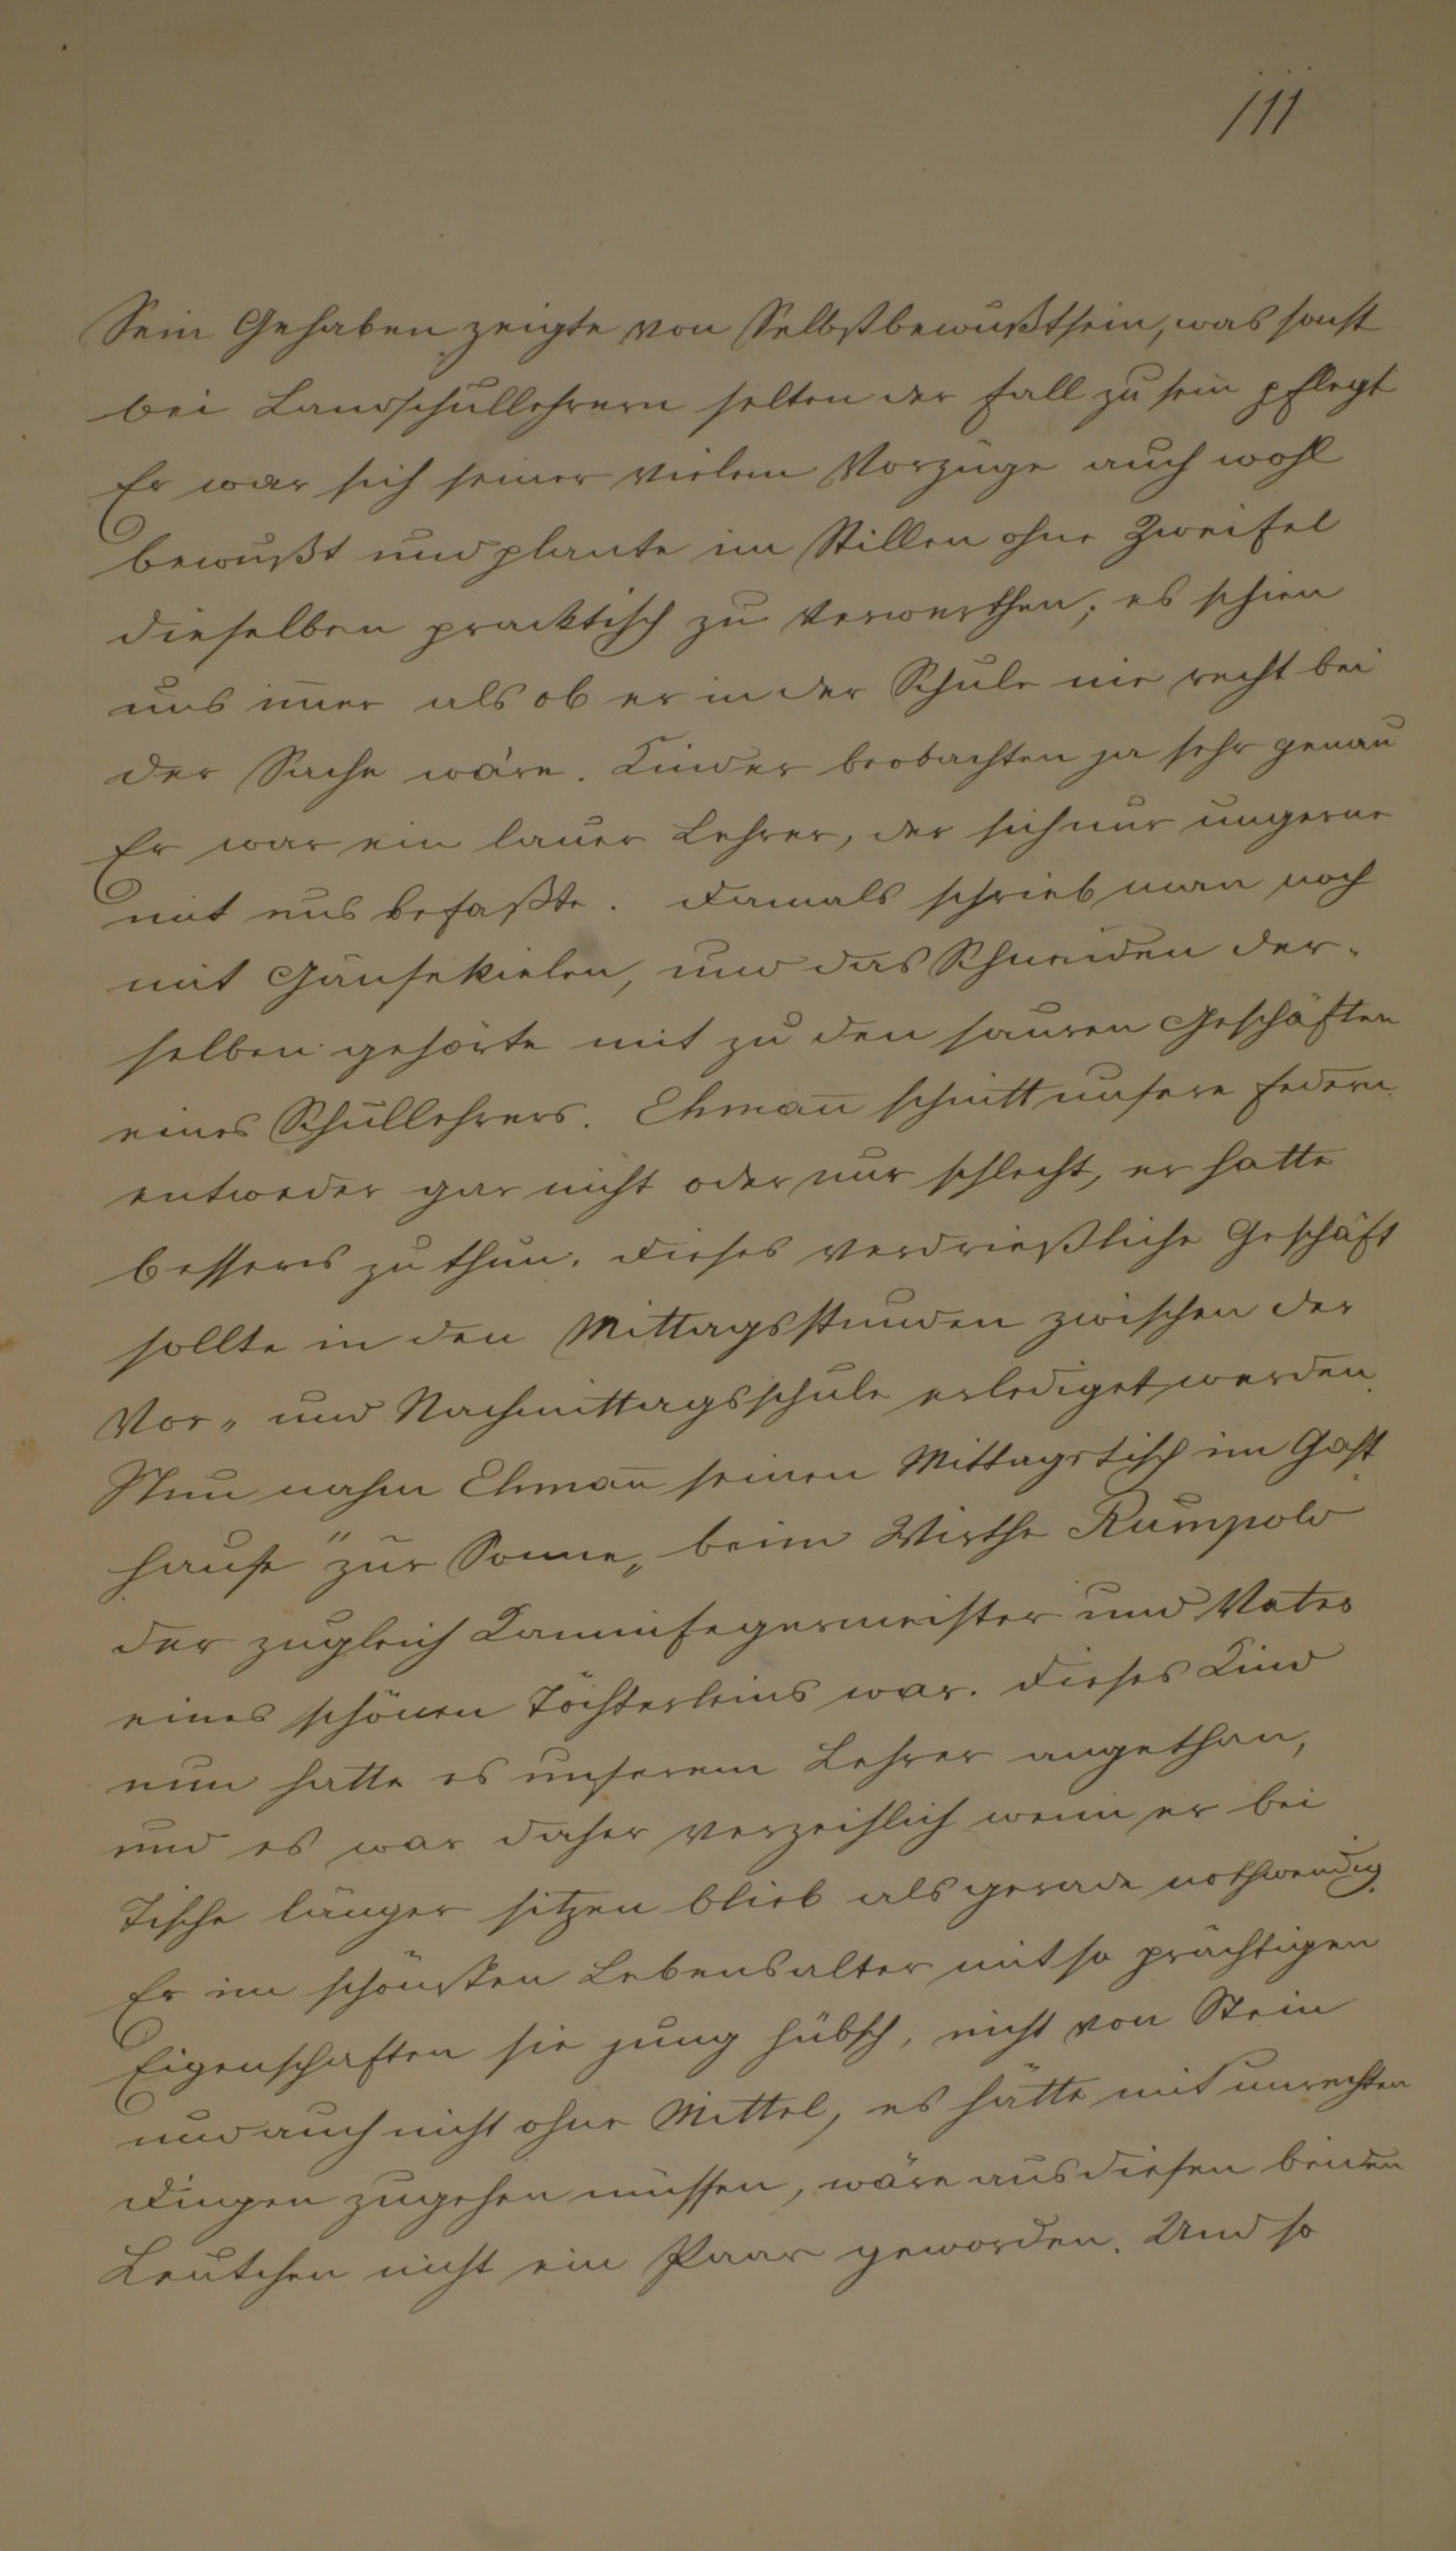 111
Sein Gehaben zeigte von Selbstbewußtsein, was sonst
bei Landschullehrern selten der Fall zu sein pflegt
Er war sich seiner vielen Vorzüge auch wohl
bewußt und plante im Stillen ohne Zweifel
dieselben pracktisch zu verwerthen; es schien
uns im̄er als ob er in der Schule nie recht bei
der Sache wäre. Kinder beobachten ja sehr genau
Er war ein lauer Lehrer, der sich nur ungerne
mit uns befaßte. Damals schrieb man noch
mit Gänsekielen, und das Schneiden der-
selben gehörte mit zu den sauren Geschäften
eines Schullehrers. Ehman̄ schnitt unsere Federn
entweder gar nicht oder nur schlecht, er hatte
besseres zu thun. Dieses verdrießliche Geschäft
sollte in den Mittagsstunden zwischen der
Vor- und Nachmittagsschule erlediget werden.
Nun nahm Ehman̄ seinen Mittagstisch im Gast
hause "zur Sonne„ beim Wirthe Rumpold
der zugleich Kaminfegermeister und Vater
eines schönen Töchterleins war. Dieses Kind
nun hatte es unserem Lehrer angethan,
und es war daher verzeihlich wenn er bei
Tische länger sitzen blieb als gerade nothwendig.
Er im schönsten Lebensalter mit so prächtigen
Eigenschaften sie jung hübsch, nicht von Stein
und auch nicht ohne Mittel, es hätte mit unrechten
Dingen zugehen müssen, wäre aus diesen beiden
Leutchen nicht ein Paar geworden. Und so